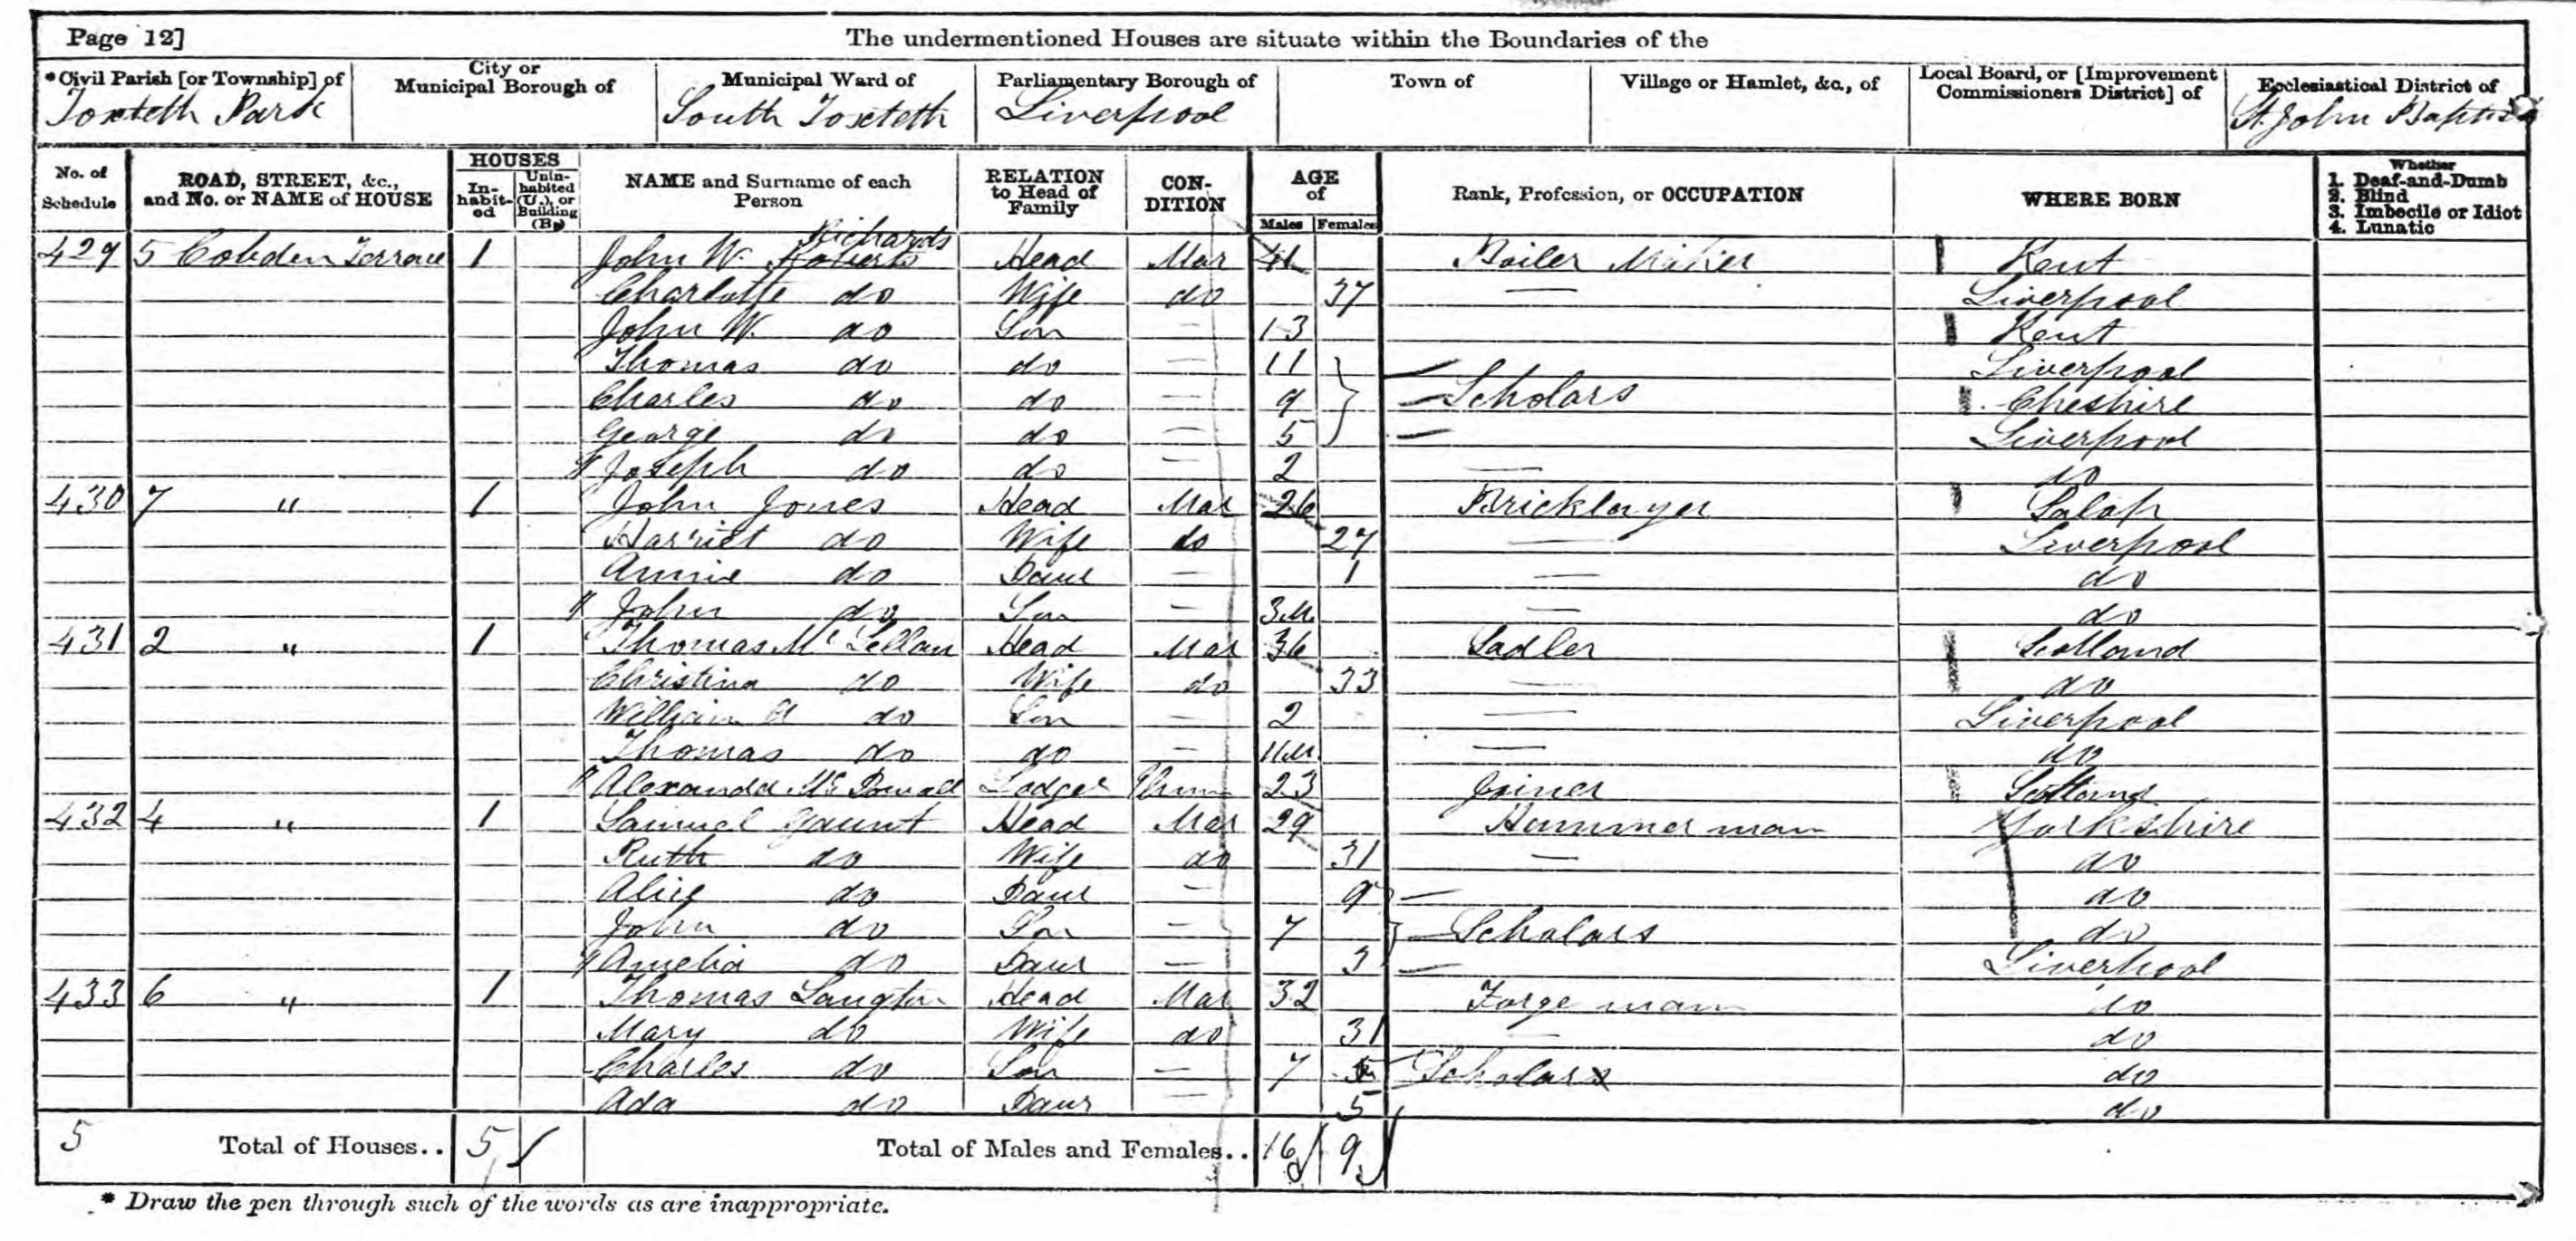 Page 12]
The undermentioned Houses are situate within the Boundaries of the
*Civil Parish [or Township] of
Toxteth Park
City or Municipal Borough of
Municipal Ward of
South Toxteth
Parliamentary Borough of
Liverpool
Town of
Village or Hamlet, &c., of
Local Board, or [Improvement Commissioners District] of
Ecclesiastical District of
St. John Baptist
No. of Schedule
ROAD, STREET, &c., and No. or NAME of HOUSE
HOUSES
In-habit-ed
Unin-habited (U.), or Building (B.)
NAME and Surname of each Person
RELATION to Head of Family
CON-DITION
AGE of
Males Females
Rank, Profession, or OCCUPATION
WHERE BORN
Whether
1. Deaf-and-Dumb
2. Blind
3. Imbecile or Idiot
4. Lunatic
Richards
429 5 Cobden Terrace 1 John W. Roberts Head Mar 41 Boiler Maker Kent
Charlotte do Wife do 37 — Liverpool
John W. do Son — 13 Kent
Thomas do do — 11 Liverpool
Charles do do — 9 Scholars Cheshire
George do do — 5 Liverpool
Joseph do do — 2 — do
430 7 " 1 John Jones Head Mar 26 Bricklayer Salop
Harriet do Wife do 27 — Liverpool
Annie do Daur — 1 — do
John do Son — 3M. — do
431 2 " 1 Thomas Mc Lellan Head Mar 36 Sadler Scotland
Christina do Wife do 33 — do
William do Son — 2 — Liverpool
Thomas do do — 11M. — do
Alexander Mc Dowall Lodger Unm 23 Joiner Scotland
432 4 " 1 Samuel Gaunt Head Mar 29 Hammer man Yorkshire
Ruth do Wife do 31 — do
Alice do Daur — 9 do
John do Son — 7 Scholars do
Amelia do Daur — 3 Liverpool
433 6 " 1 Thomas Langton Head Mar 32 Forge man do
Mary do Wife do 31 — do
Charles do Son — 7 Scholar do
Ada do Daur — 5 do
5 Total of Houses.. 5 Total of Males and Females.. 16 9
* Draw the pen through such of the words as are inappropriate.